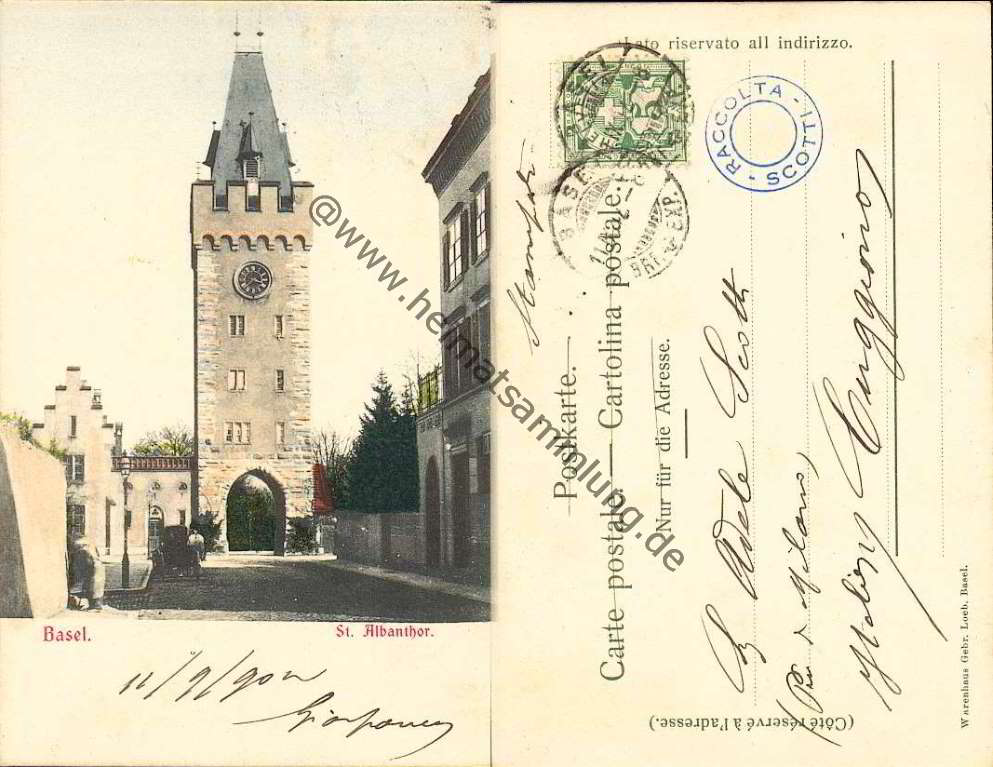 Basel.
St. Albanthor.
11/9/902
@www.heimatsammlung.de
Lato riservato all indirizzo.
RACCOLTA - SCOTTI -
BASEL
BRF. EXP.
Stampate
Postkarte.
Carte postale. — Cartolina postale.
Nur für die Adresse.
(Côté réservé à l'adresse.)
Adele Scotti
Milano,
Cuggiono
Warenhaus Gebr. Loeb. Basel.